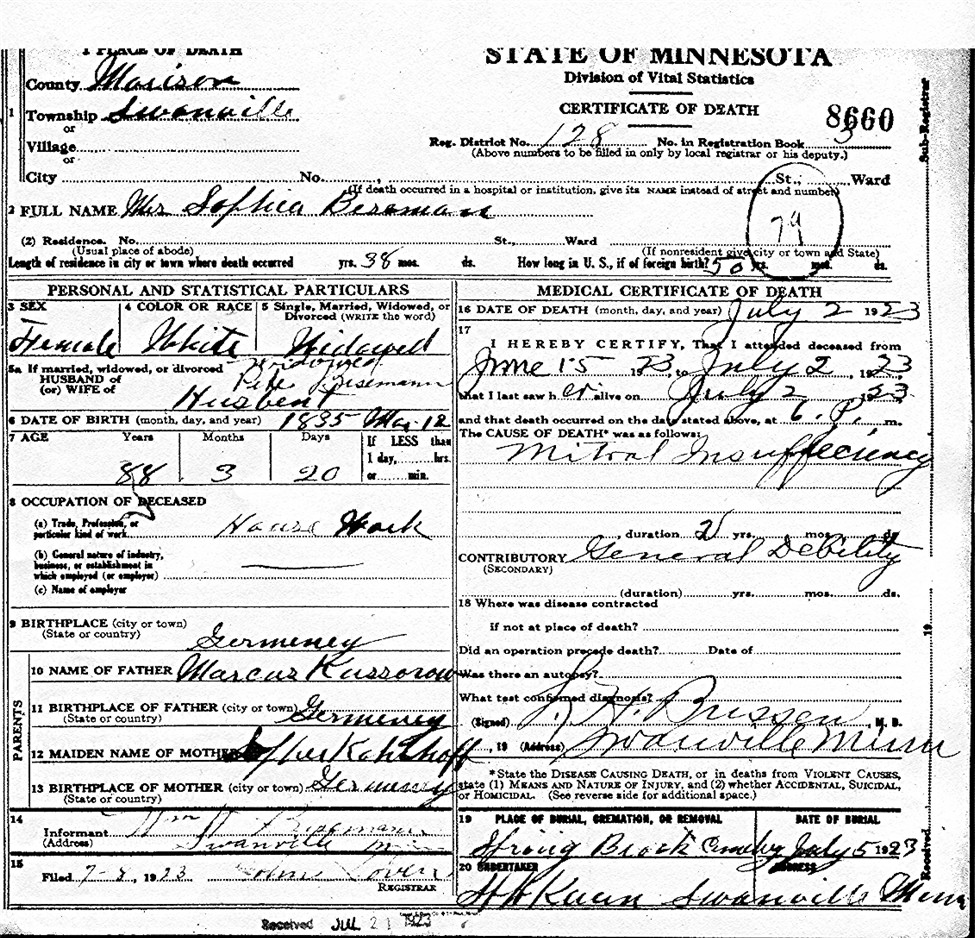 1 PLACE OF DEATH
STATE OF MINNESOTA
Division of Vital Statistics
CERTIFICATE OF DEATH
8660
County Morison
1 Township Swanville
or
Village
or
City No. St., Ward
Reg. District No. 128 No. in Registration Book 3
(Above numbers to be filled in only by local registrar or his deputy.)
(If death occurred in a hospital or institution, give its NAME instead of street and number)
2 FULL NAME Mrs Sophia
79
(2) Residence. No. St., Ward
(Usual place of abode) (If nonresident give city or town and State)
Length of residence in city or town where death occurred yrs. 38 mos. ds. How long in U.S., if of foreign birth? 50 yrs. mos. ds.
PERSONAL AND STATISTICAL PARTICULARS
3 SEX 4 COLOR OR RACE 5 Single, Married, Widowed, or
Divorced (WRITE the word)
Female White Widowed
5a If married, widowed, or divorced
HUSBAND of
(or) WIFE of
Husbent
6 DATE OF BIRTH (month, day, and year) 1835 Mar 12
7 AGE Years Months Days If LESS than
1 day, hrs.
88 3 20 or min.
8 OCCUPATION OF DECEASED
(a) Trade, Profession, or
particular kind of work House Work
(b) General nature of industry,
business, or establishment in
which employed (or employer)
(c) Name of employer
9 BIRTHPLACE (city or town)
(State or country) Germeney
PARENTS
10 NAME OF FATHER Marcus Kussorow
11 BIRTHPLACE OF FATHER (city or town)
(State or country) Germeney
12 MAIDEN NAME OF MOTHER
13 BIRTHPLACE OF MOTHER (city or town)
(State or country) Germeney
14
Informant Wm
(Address) Swanville Minn
15
Filed 7-5, 1923
REGISTRAR
MEDICAL CERTIFICATE OF DEATH
16 DATE OF DEATH (month, day, and year) July 2 1923
17
I HEREBY CERTIFY, That I attended deceased from
June 15 1923, to July 2, 1923
that I last saw h er alive on July 2, 1923
and that death occurred on the date stated above, at 6. P. m.
The CAUSE OF DEATH* was as follows:
Mitral Insuffeciency
duration 2 yrs. mos. ds.
CONTRIBUTORY General Debility
(SECONDARY)
(duration) yrs. mos. ds.
18 Where was disease contracted
if not at place of death?
Did an operation precede death? Date of
Was there an autopsy?
What test confirmed diagnosis?
(Signed) M. D.
, 19 (Address) Swanville Minn
*State the DISEASE CAUSING DEATH, or in deaths from VIOLENT CAUSES,
state (1) MEANS AND NATURE OF INJURY, and (2) whether ACCIDENTAL, SUICIDAL,
or HOMICIDAL. (See reverse side for additional space.)
19 PLACE OF BURIAL, CREMATION, OR REMOVAL DATE OF BURIAL
Spring Brook July 5 1923
20 UNDERTAKER ADDRESS
Swanville Minn
Sub-Registrar
Received 19
Received JUL 21 1923